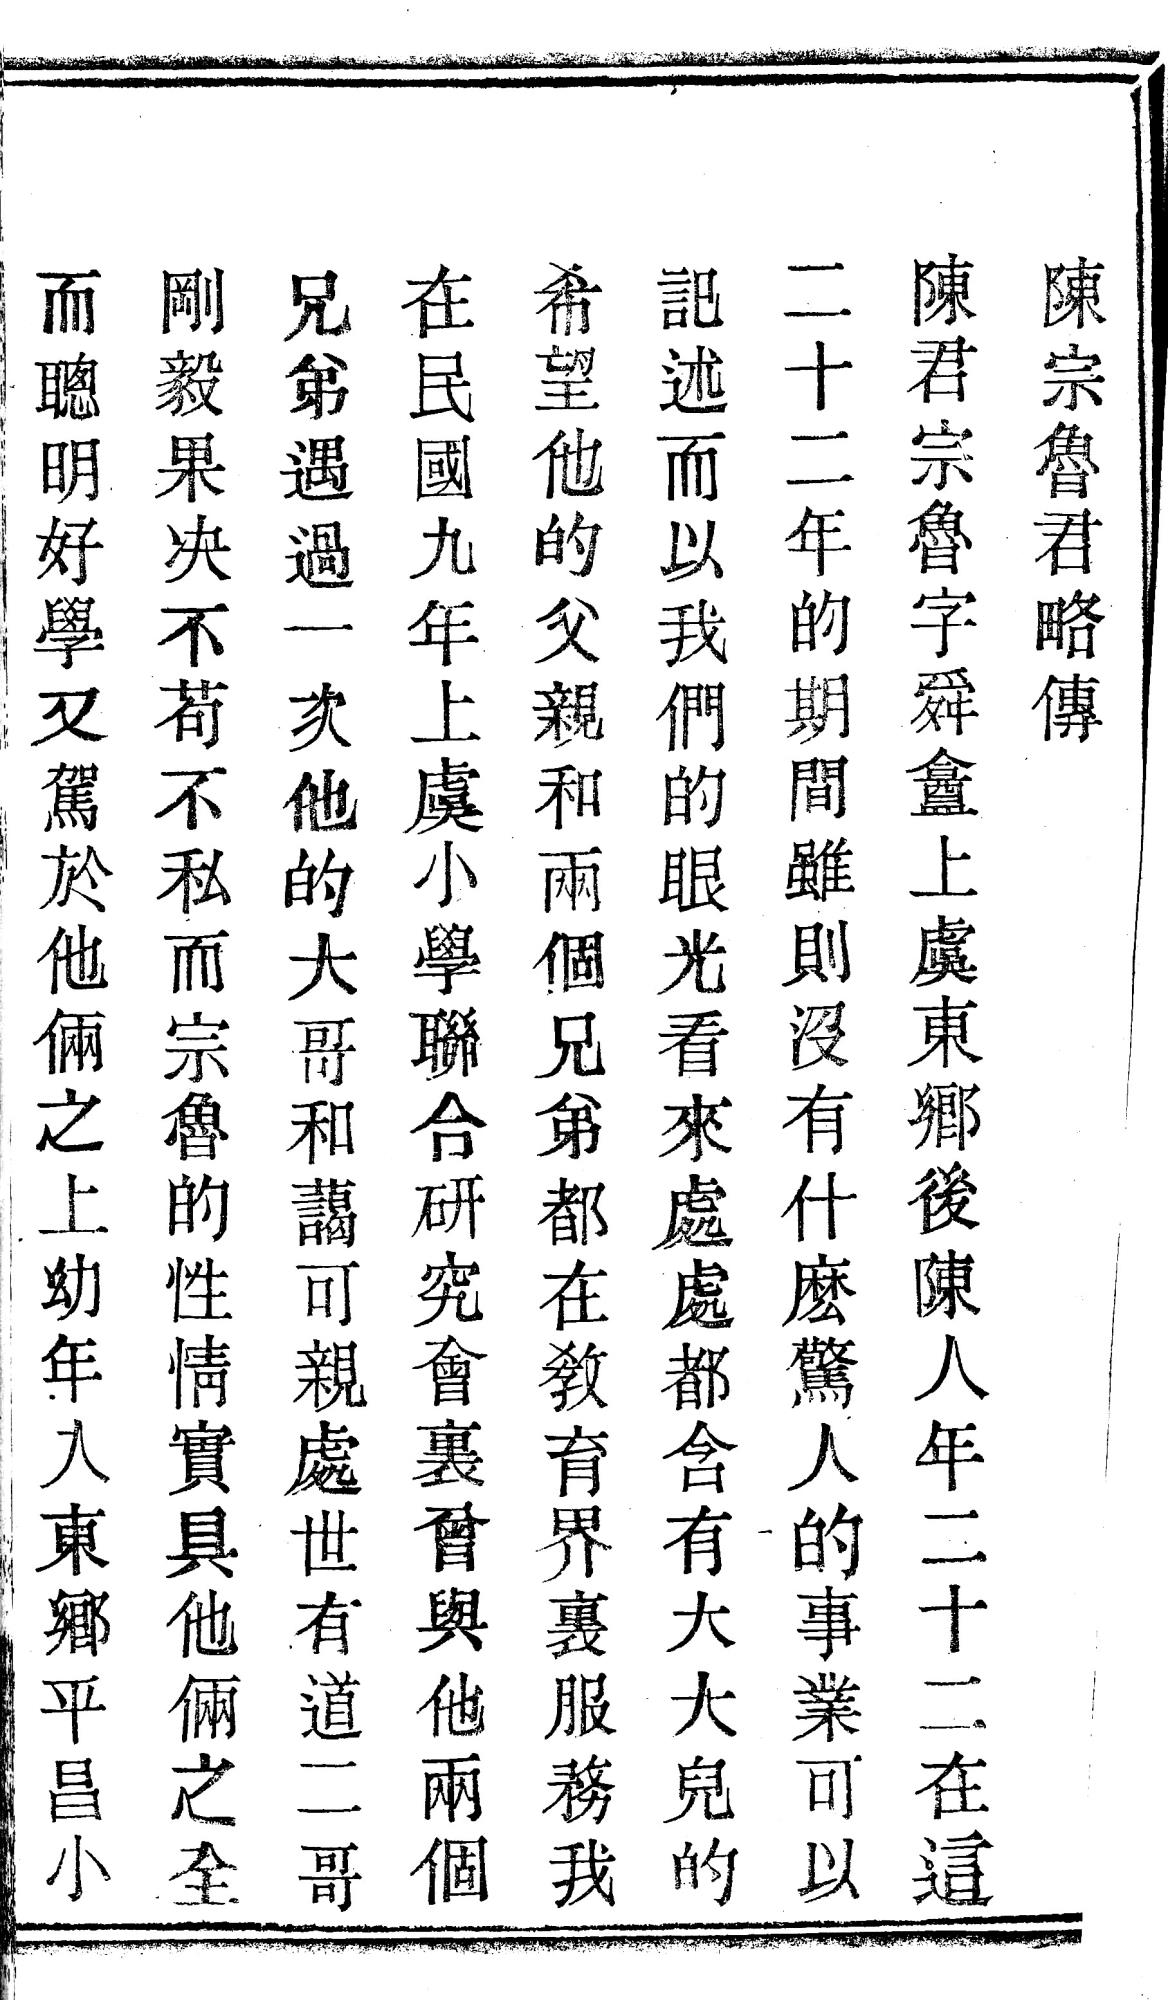 陳宗魯君略傳
陳君宗魯字舜盦上虞東鄉後陳人年二十二在這
二十二年的期間雖則沒有什麽驚人的事業可以
記述而以我們的眼光看來處處都含有大大兒的
希望他的父親和兩個兄弟都在教育界裏服務我
在民國九年上虞小學聯合研究會裏曾與他兩個
兄弟遇過一次他的大哥和藹可親處世有道二哥
剛毅果决不苟不私而宗魯的性情實具他倆之全
而聰明好學又駕於他倆之上幼年入東鄉平昌小